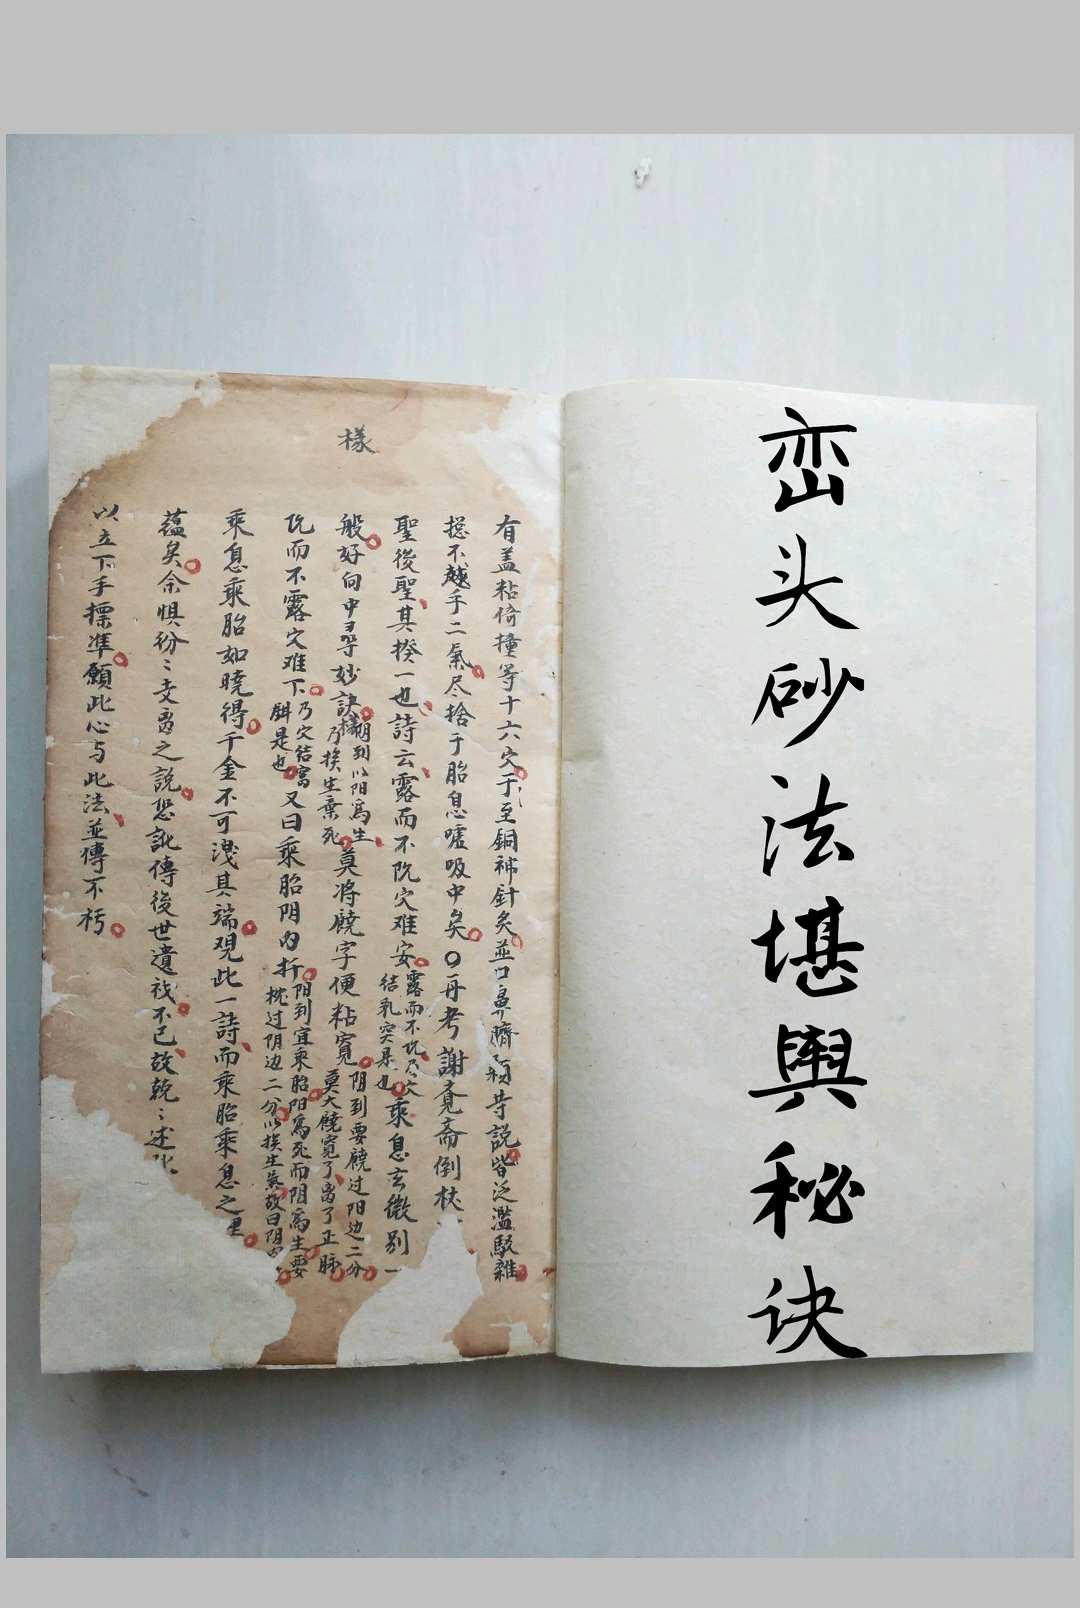 峦头砂法堪舆秘诀
樣
有盖粘倚撞等十六穴于至銅神針灸並口鼻臍頦等說皆泛濫駁雜
捴不越乎二氣尽捨于胎息嘘吸中矣〇再考謝覔斋倒杖
聖後聖其揆一也詩云露而不阮穴难安
露而不阮乃穴
结乳突是也
乘息玄微别一
般好向中寻妙訣樣
阴到以阳為生
乃挨生棄死
莫将饒字便粘寬
阴到要饒过阳边二分
莫大饒寬了离了正脉
阮而不露穴难下
乃穴结窩
鉗是也
又曰乘胎阴内折
阳到宜乘胎阳為死而阴為生要
枕过阴边二分以挨生氣故曰阴内
乘息乘胎如曉得千金不可洩其端观此一詩而乘胎乘息之里
蕴矣余惧纷〻支离之說恐訛傳後世遺祸不已故乾〻述此
以立下手摽準願此心与此法並傳不朽